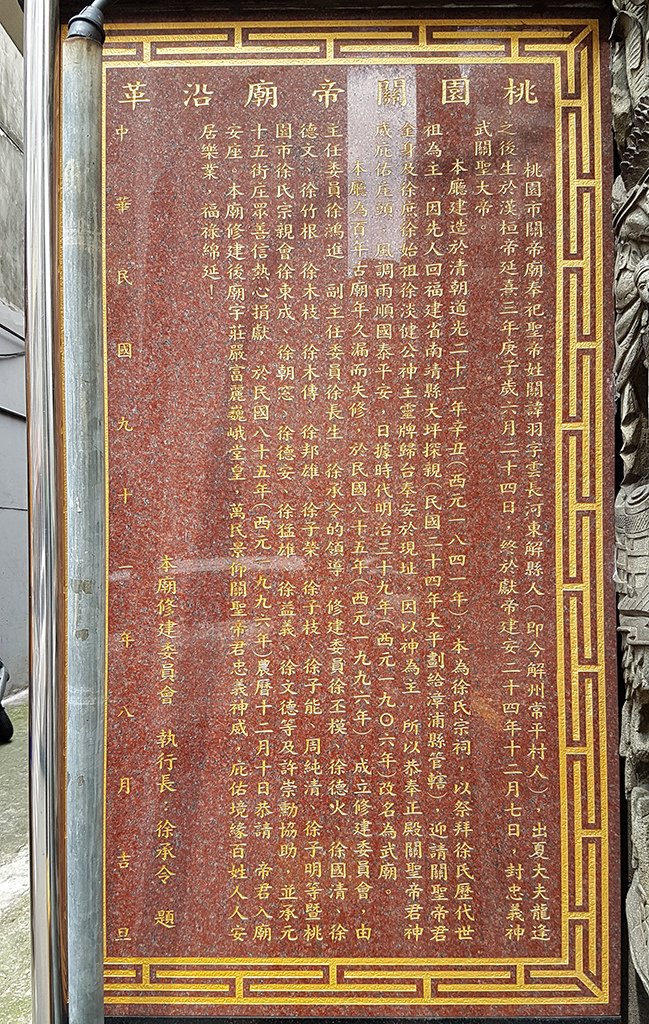 桃園關帝廟沿革
桃園市關帝廟奉祀聖帝姓關諱羽字雲長河東解縣人(即今解州常平村人),出夏大夫龍逢
之後生於漢桓帝延喜三年庚子歲六月二十四日 終於獻帝建安二十四年十二月七日,封忠義神
武關聖大帝。
本廳建造於清朝道光二十一年辛丑(西元一八四一年),本為徐氏宗祠,以祭拜徐氏歷代世
祖為主,因先人回福建省南靖縣大坪探親(民國二十四年大平劃給漳浦縣管轄),迎請關聖帝君
金身及徐庶徐始祖徐淡健公神主靈牌歸台奉安於現址,因以神為主,所以恭奉正殿關聖帝君神
威庇佑庄頭,風調雨順國泰平安,日據時代明治三十九年(西元一九〇六年)改名為武廟。
本廳為百年古廟年久漏而失修,於民國八十五年(西元一九九六年),成立修建委員會,由
主任委員徐鴻進、副主任委員徐長生、徐承令的領導,修建委員徐丕模、徐德火、徐國清、徐
德文、徐竹根、徐木枝、徐木傳、徐邦雄、徐子榮、徐子枝、徐子能、周純清、徐子明等暨桃
園市徐氏宗親會徐東成、徐朝窓、徐德安、徐猛雄、徐益義、徐文德等及許崇勳協助,並承元
十五街庄眾善信熱心捐獻,於民國八十五年(西元一九九六年)農曆十二月十日恭請 帝君入廟
安座。本廟修建後廟宇莊嚴富麗巍峨堂皇,萬民景仰關聖帝君忠義神威,庇佑境緣百姓人人安
居樂業,福祿綿延!
本廟修建委員會 執行長:徐承令 題
中華民國九十一年八月吉旦